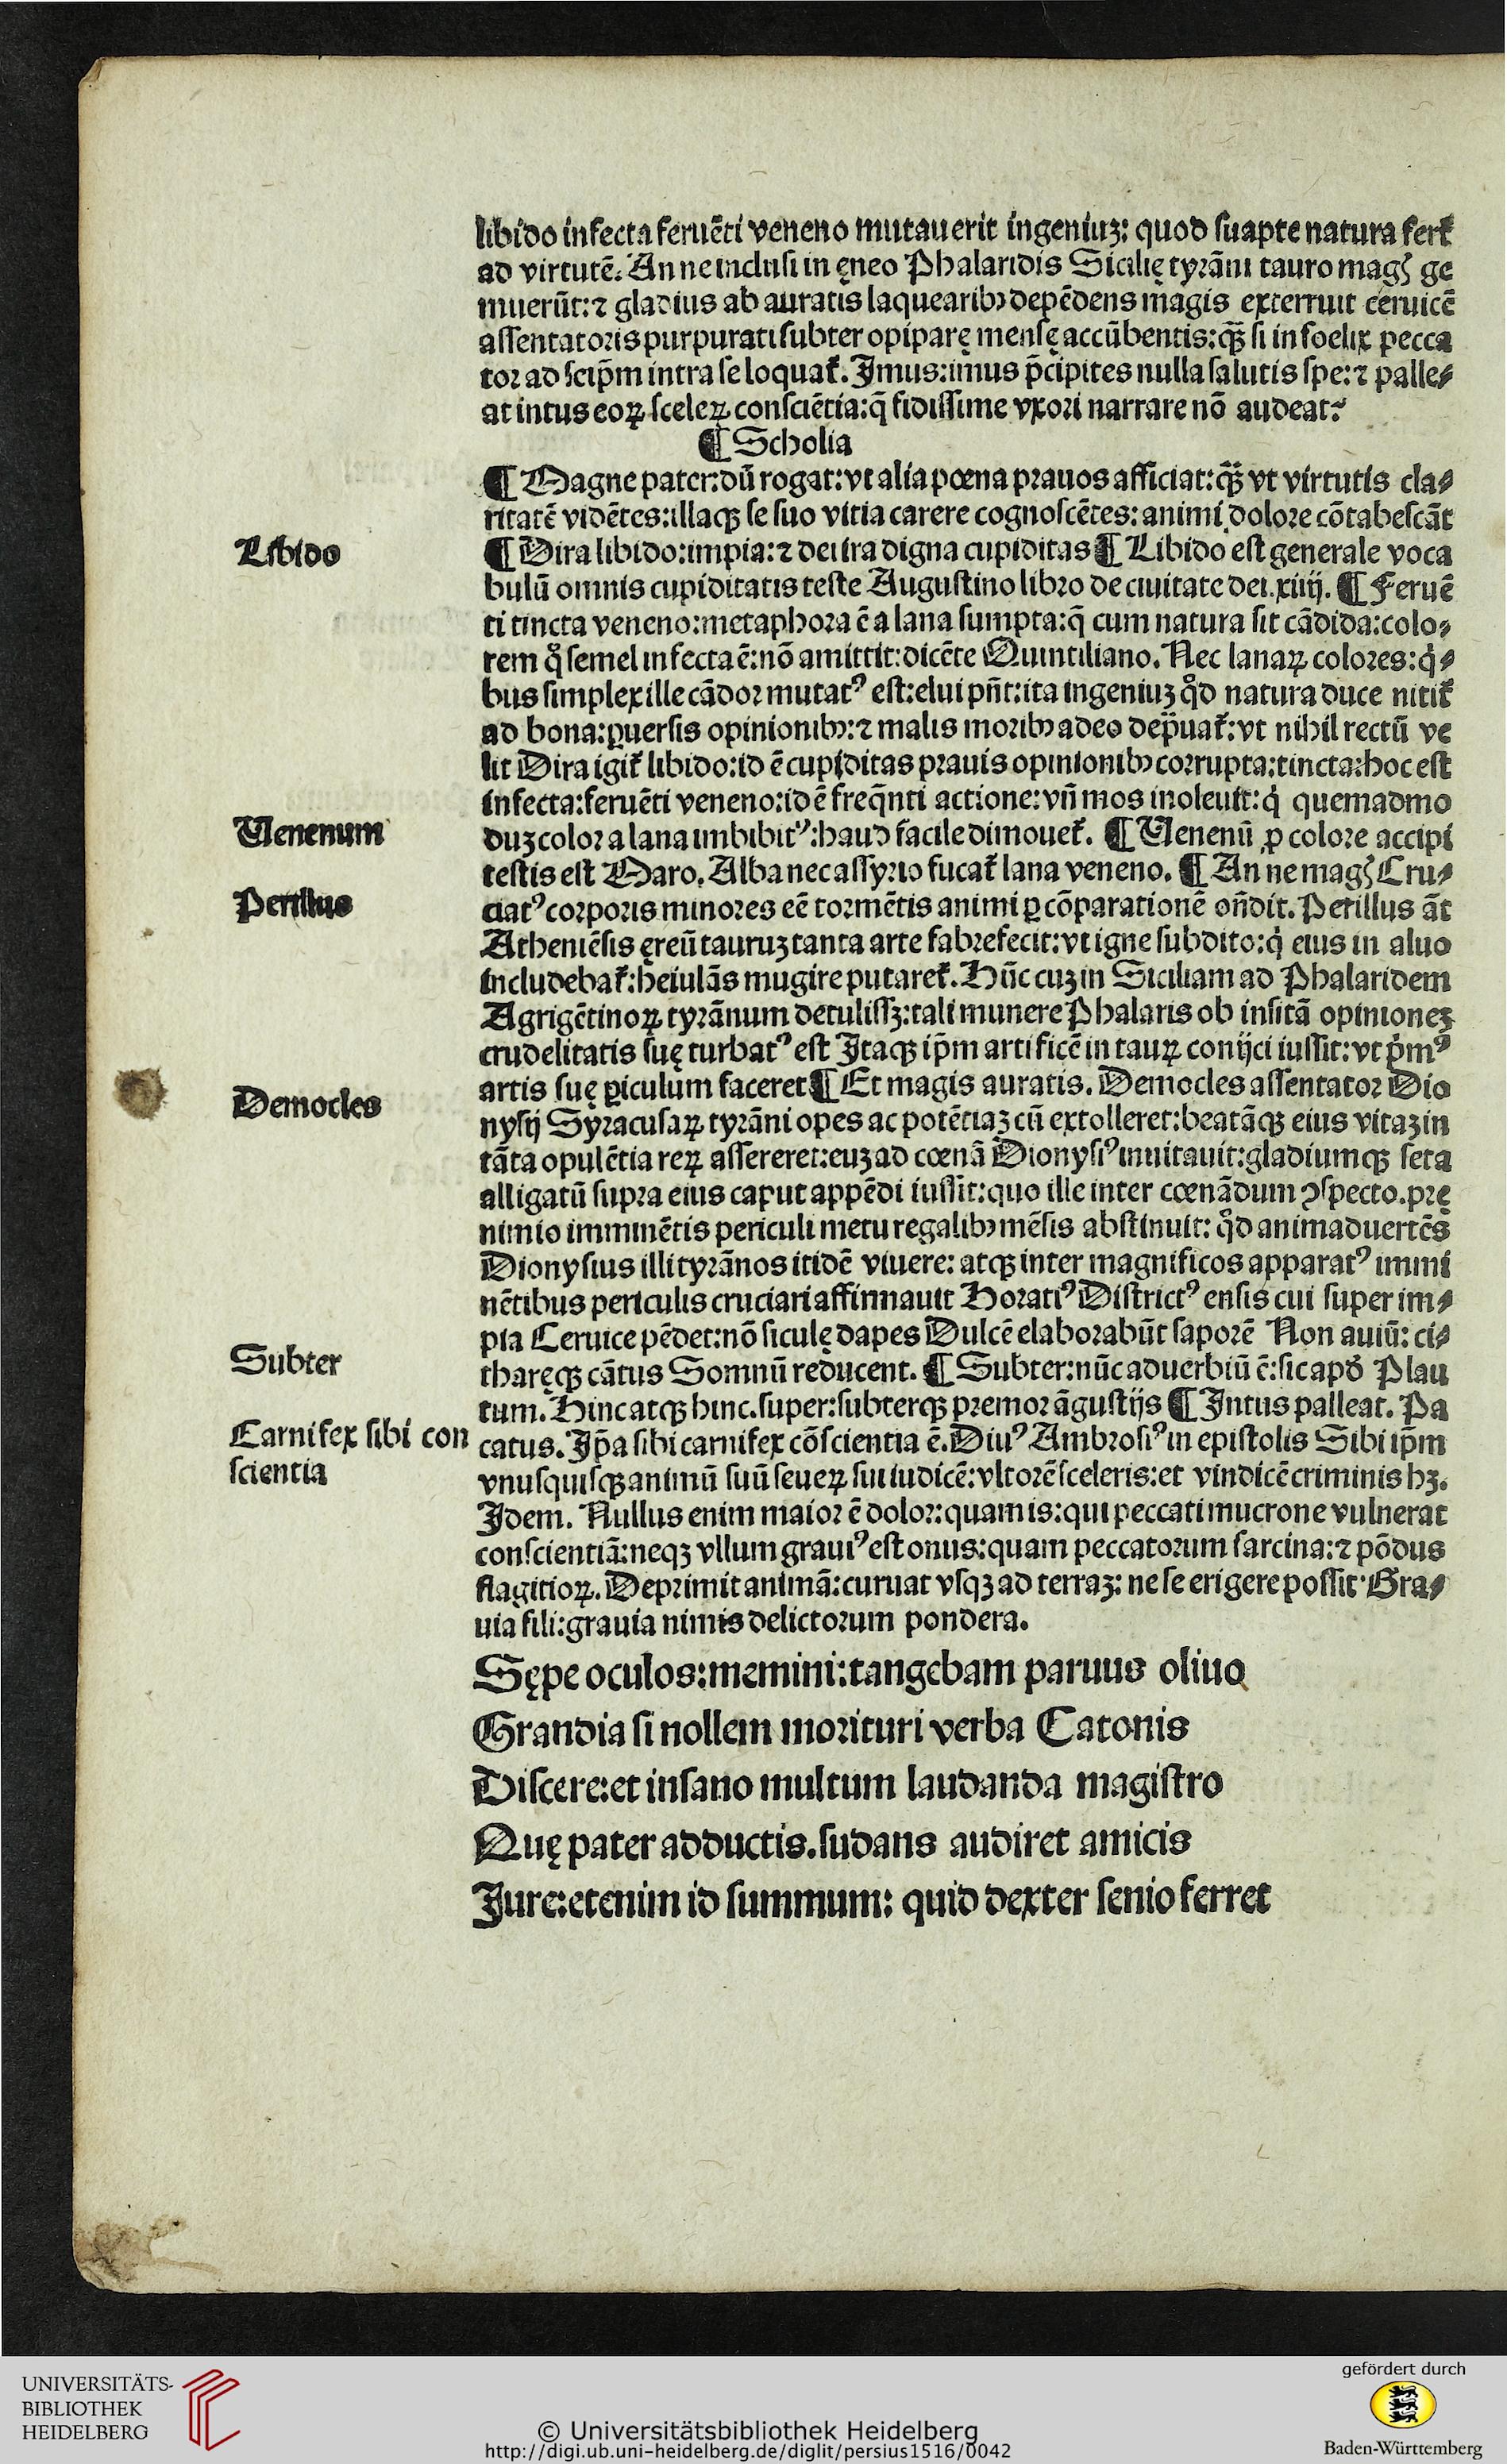 libido infecta feruēti veneno mutauerit ingeniuʒ: quod suapte natura fert᷑
ad virtutē. An ne inclusi in ęneo Phalaridis Sicilię tyrāni tauro magꝭ ge
muerūt: ⁊ gladius ab auratis laquearibꝰ depēdens magis exterruit ceruicē
assentatoris purpurati subter opiparę mensę accūbentis: qꝫ̄ si infoelix pecca
tor ad seip̄m intra se loquat᷑. Imus: imus p̄cipites nulla salutis spe: ⁊ palle⸗
at intus eoꝝ sceleꝝ consciētia: q̄ fidissime vxori narrare nō audeat?
¶ Scholia
¶ Magne pater: dū rogat: vt alia pœna prauos afficiat: qꝫ̄ vt virtutis cla⸗
ritatē vidētes: illaqꝫ se suo vitia carere cognoscētes: animi dolore cōtabescāt
Libido
¶ Dira libido: impia: ⁊ dei ira digna cupiditas ¶ Libido est generale voca
bulū omnis cupiditatis teste Augustino libro de ciuitate dei. xiiij. ¶ Feruē
ti tincta veneno: metaphora ē a lana sumpta: q̄ cum natura sit cādida: colo⸗
rem qͦ semel infecta ē: nō amittit: dicēte Quintiliano. Nec lanaꝝ colores: qͥ⸗
bus simplex ille cādor mutatꝰ est: elui pn̄t: ita ingeniuʒ qͦd natura duce nitit᷑
ad bona: ꝑuersis opinionibꝰ: ⁊ malis moribꝰ adeo dep̄uat᷑: vt nihil rectū ve
lit Dira igit᷑ libido: id ē cupiditas prauis opinionibꝰ corrupta: tincta: hoc est
infecta: feruēti veneno: id ē freq̄nti actione: vn̄ mos inoleuit: qͥ quemadmo
Uenenum
duʒ color a lana imbibitꝰ: haud facile dimouet᷑. ¶ Uenenū ꝓ colore accipi
testis est Maro. Alba nec assyrio fucat᷑ lana veneno. ¶ An ne magꝭ Cru⸗
Perillus
ciatꝰ corporis minores eē tormētis animi ꝑ cōparationē on̄dit. Perillus āt
Atheniēsis ęreū tauruʒ tanta arte fabrefecit: vt igne subdito: qͥ eius in aluo
includebat᷑: heiulās mugire putaret᷑. Hūc cuʒ in Siciliam ad Phalaridem
Agrigētinoꝝ tyrānum detulissʒ: tali munere Phalaris ob insitā opinioneʒ
crudelitatis suę turbatꝰ est Itaqꝫ ip̄m artificē in tauꝝ conijci iussit: vt p̄mꝰ
artis suę ꝑiculum faceret ¶ Et magis auratis. Democles assentator Dio
Democles
nysij Syracusaꝝ tyrāni opes ac potētiaʒ cū extolleret: beatāqꝫ eius vitaʒ in
tāta opulētia reꝝ assereret: euʒ ad cœnā Dionysiꝰ inuitauit: gladiumqꝫ seta
alligatū supra eius caput appēdi iussit: quo ille inter cœnādum ꝯspecto. prę
nimio imminētis periculi metu regalibꝰ mēsis abstinuit: qͦd animaduertēs
Dionysius illi tyrānos itidē viuere: atqꝫ inter magnificos apparatꝰ immi
nētibus periculis cruciari affirmauit Horatiꝰ Districtꝰ ensis cui super im⸗
pia Ceruice pēdet: nō siculę dapes Dulcē elaborabūt saporē Non auiū: ci⸗
Subter
tharęqꝫ cātus Somnū reducent. ¶ Subter: nūc aduerbiū ē: sic apd̓ Plau
tum. Hinc atqꝫ hinc. super: subterqꝫ premor āgustijs ¶ Intus palleat. Pa
Carnifex sibi con
scientia
catus. Ip̄a sibi carnifex cōscientia ē. Diuꝰ Ambrosiꝰ in epistolis Sibi ip̄m
vnusquisqꝫ animū suū seueꝝ sui iudicē: vltorē sceleris: et vindicē criminis hʒ.
Idem. Nullus enim maior ē dolor: quam is: qui peccati mucrone vulnerat
conscientiā: neqꝫ vllum grauiꝰ est onus: quam peccatorum sarcina: ⁊ pōdus
flagitioꝝ. Deprimit animā: curuat vsqꝫ ad terraʒ: ne se erigere possit. Gra⸗
uia fili: grauia nimis delictorum pondera.
Sępe oculos: memini: tangebam paruus oliuo
Grandia si nollem morituri verba Catonis
Discere: et insano multum laudanda magistro
Quę pater adductis. sudans audiret amicis
Iure: etenim id summum: quid dexter senio ferret
UNIVERSITÄTS-
BIBLIOTHEK
HEIDELBERG
© Universitätsbibliothek Heidelberg
http://digi.ub.uni-heidelberg.de/diglit/persius1516/0042
gefördert durch
Baden-Württemberg